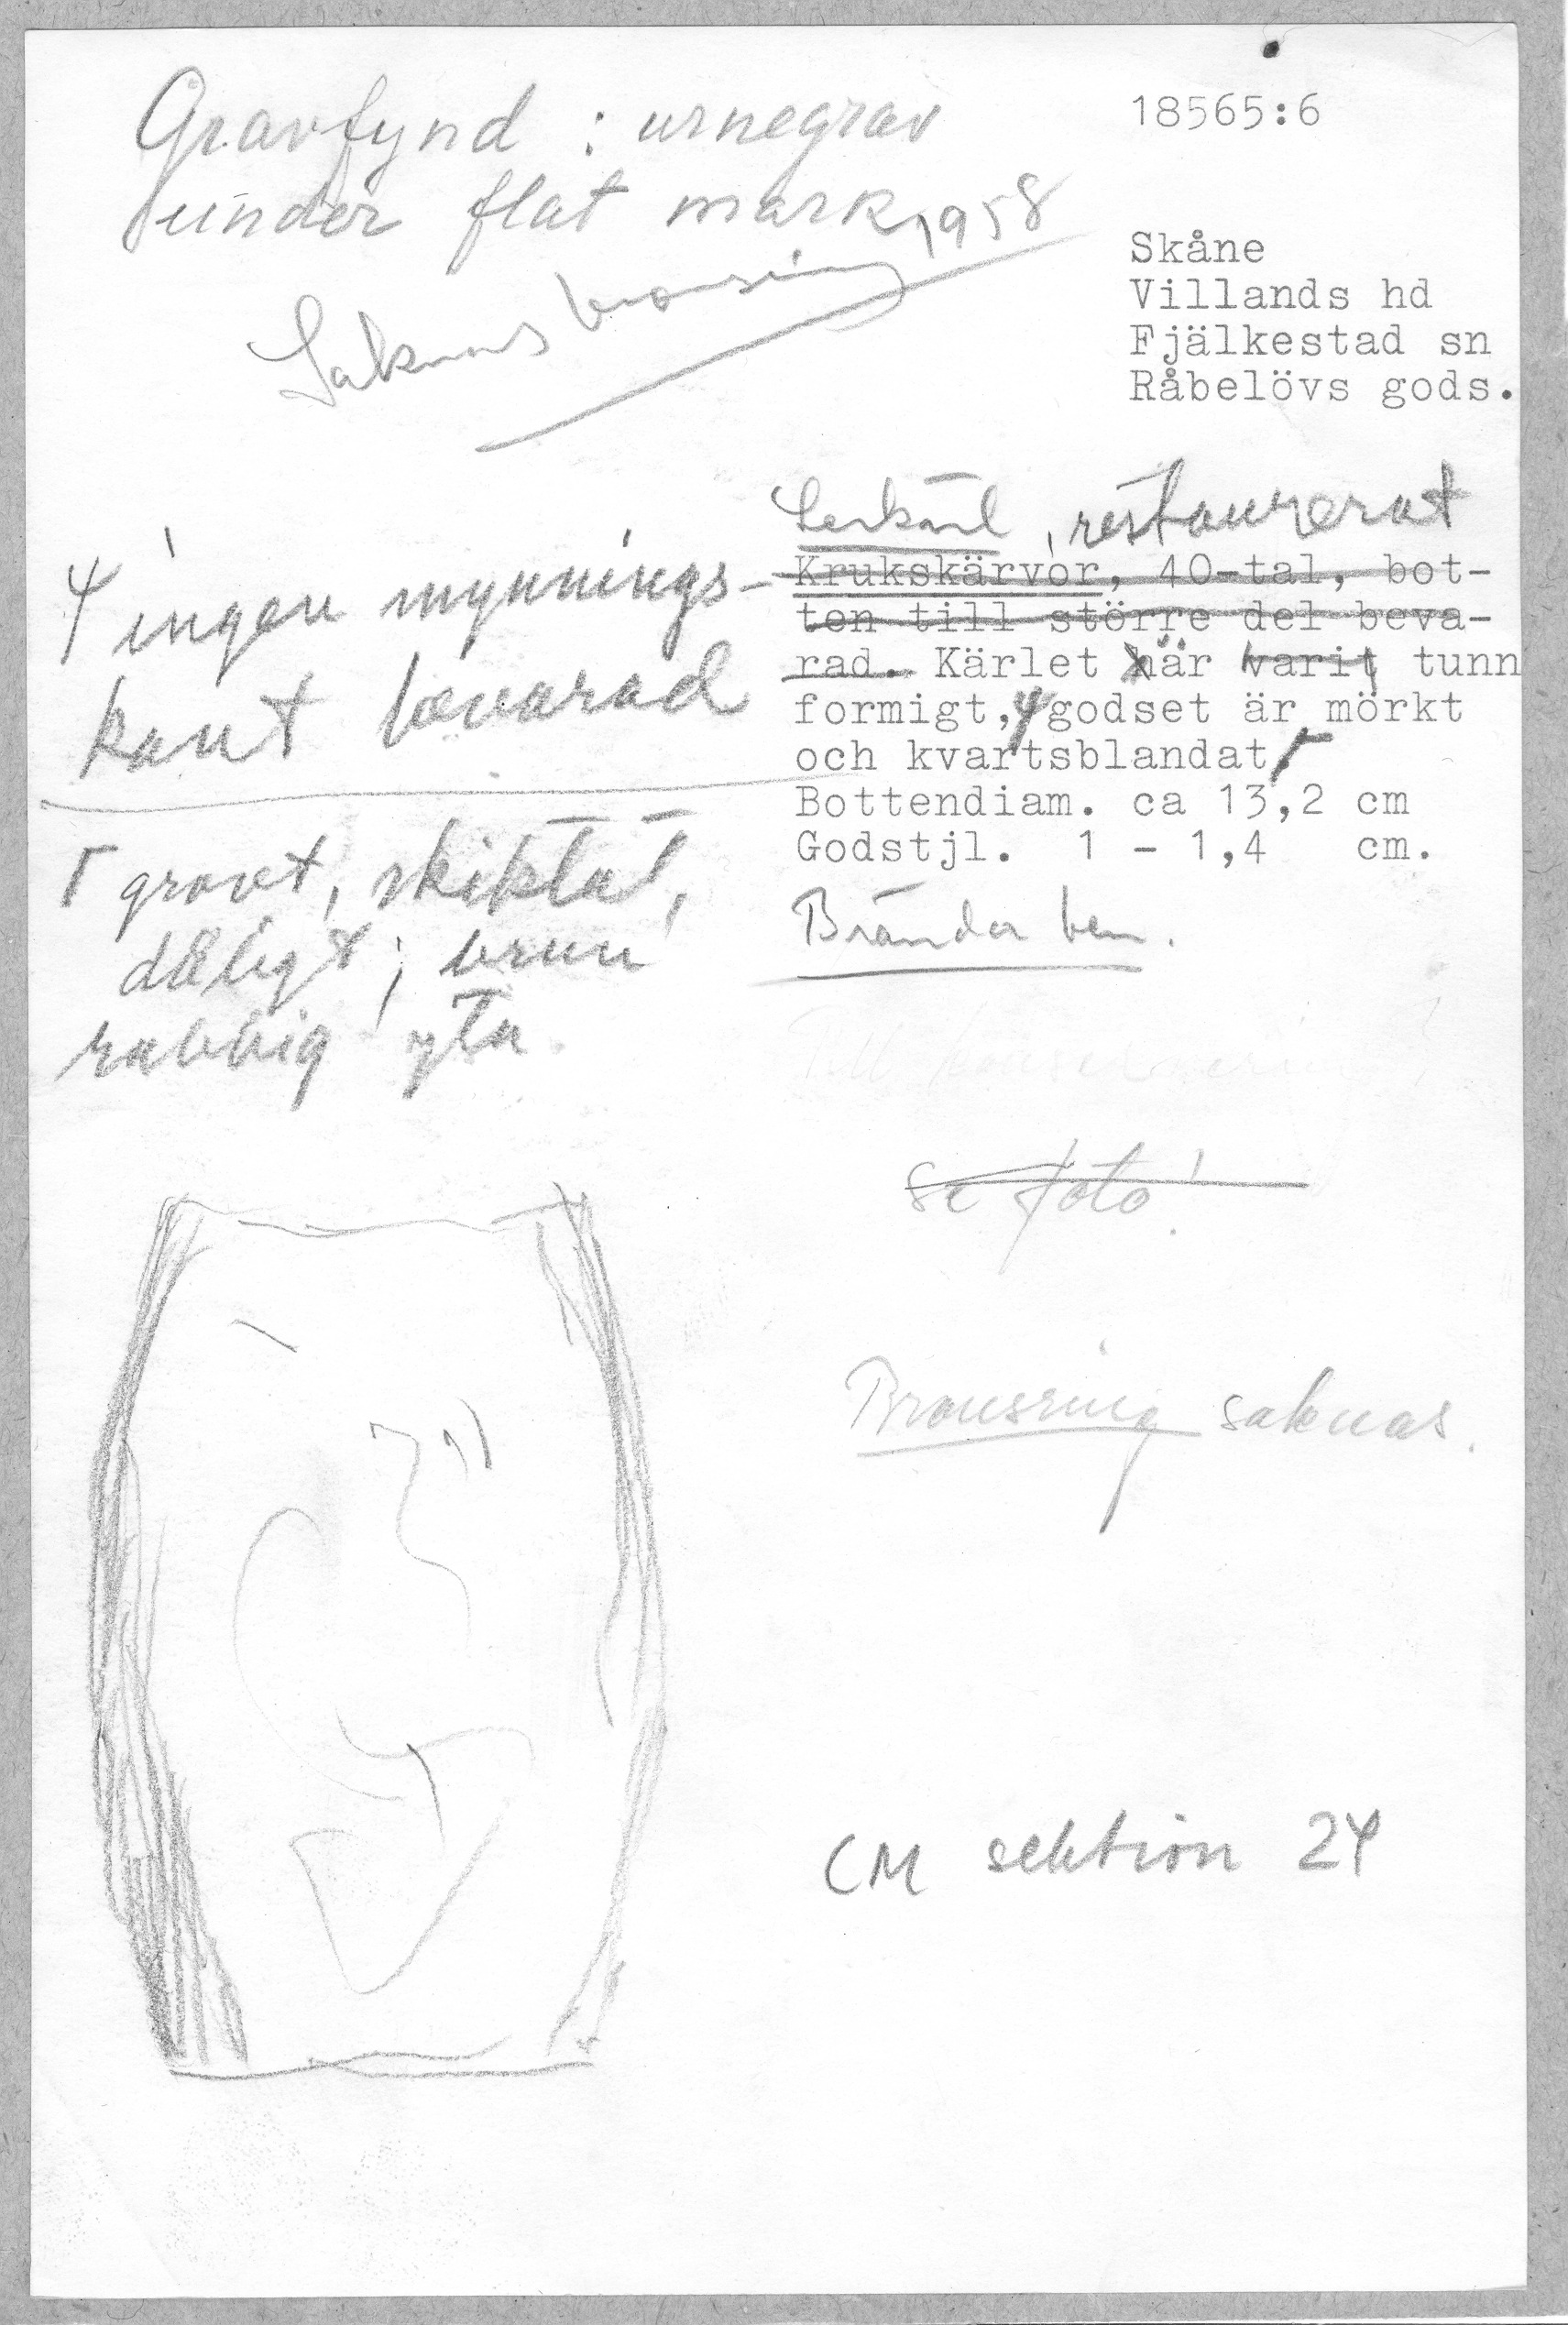 Gravfynd : urnegrav
under flat mark 1958
Saknas bronsring
18565:6
Skåne
Villands hd
Fjälkestad sn
Råbelövs gods.
Lerkärl, restaurerat
Krukskärvor, 40-tal, bot-
ten till större del beva-
rad. Kärlet här varit tunn
formigt, godset är mörkt
och kvartsblandat
Bottendiam. ca 13,2 cm
Godstjl. 1 - 1,4 cm.
Brända ben.
ingen mynnings-
kant bevarad
grovt, skiktat,
dåligt; brun
rabbig yta
Till konservering!
se foto!
Bronsring saknas.
CM sektion 24